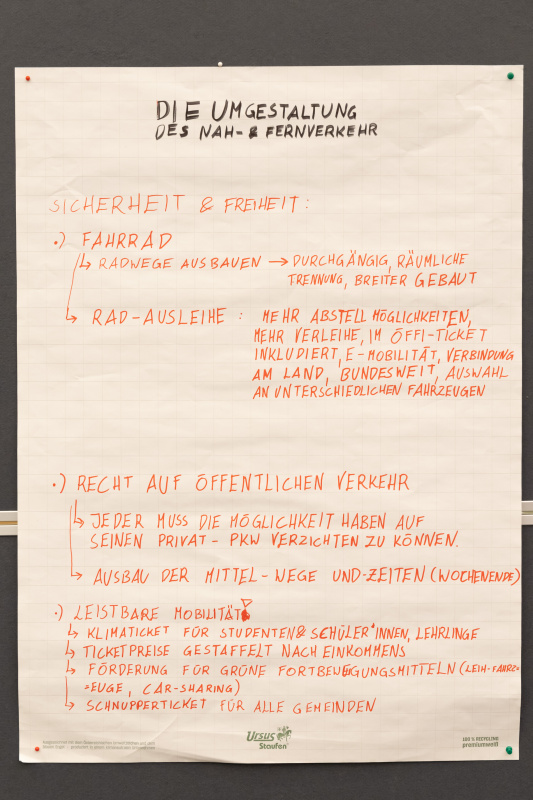 DIE UMGESTALTUNG
DES NAH- & FERNVERKEHR
SICHERHEIT & FREIHEIT:
.) FAHRRAD
↳ RADWEGE AUSBAUEN → DURCHGÄNGIG, RÄUMLICHE
TRENNUNG, BREITER GEBAUT
↳ RAD-AUSLEIHE : MEHR ABSTELL MÖGLICHKEITEN,
MEHR VERLEIHE, IM ÖFFI-TICKET
INKLUDIERT, E-MOBILITÄT, VERBINDUNG
AM LAND, BUNDESWEIT, AUSWAHL
AN UNTERSCHIEDLICHEN FAHRZEUGEN
.) RECHT AUF ÖFFENTLICHEN VERKEHR
↳ JEDER MUSS DIE MÖGLICHKEIT HABEN AUF
SEINEN PRIVAT-PKW VERZICHTEN ZU KÖNNEN.
↳ AUSBAU DER MITTEL-WEGE UND-ZEITEN (WOCHENENDE)
.) LEISTBARE MOBILITÄT
↳ KLIMATICKET FÜR STUDENTEN & SCHÜLER*INNEN, LEHRLINGE
↳ TICKETPREISE GESTAFFELT NACH EINKOMMENS
↳ FÖRDERUNG FÜR GRÜNE FORTBEWEGUNGSMITTELN (LEIH-FAHRZ=
=EUGE, CAR-SHARING)
↳ SCHNUPPERTICKET FÜR ALLE GEMEINDEN
Ursus
Staufen
100 % RECYCLING
premiumweiß